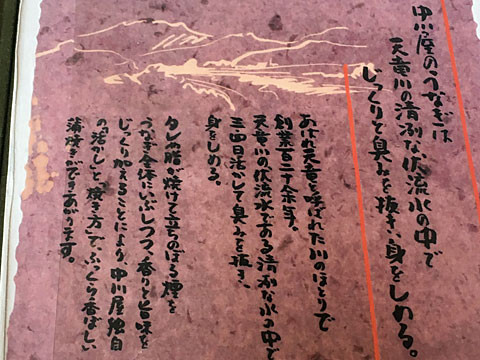 中川屋のうなぎは
天竜川の清冽な伏流水の中で
じっくりと臭みを抜き、身をしめる。
あばれ天竜と呼ばれた川のほとりで
創業百二十余年。
天竜川の伏流水である清らかな水の中で
三、四日活かして臭みを抜き、
身をしめる。
タレの脂が焼けて立ちのぼる煙を
うなぎ全体にいぶしつつ、香りと旨味を
じっくり加えることにより、中川屋独自
の「活かし」と「焼き方」で、ふっくら香ばしい
蒲焼きができあがります。